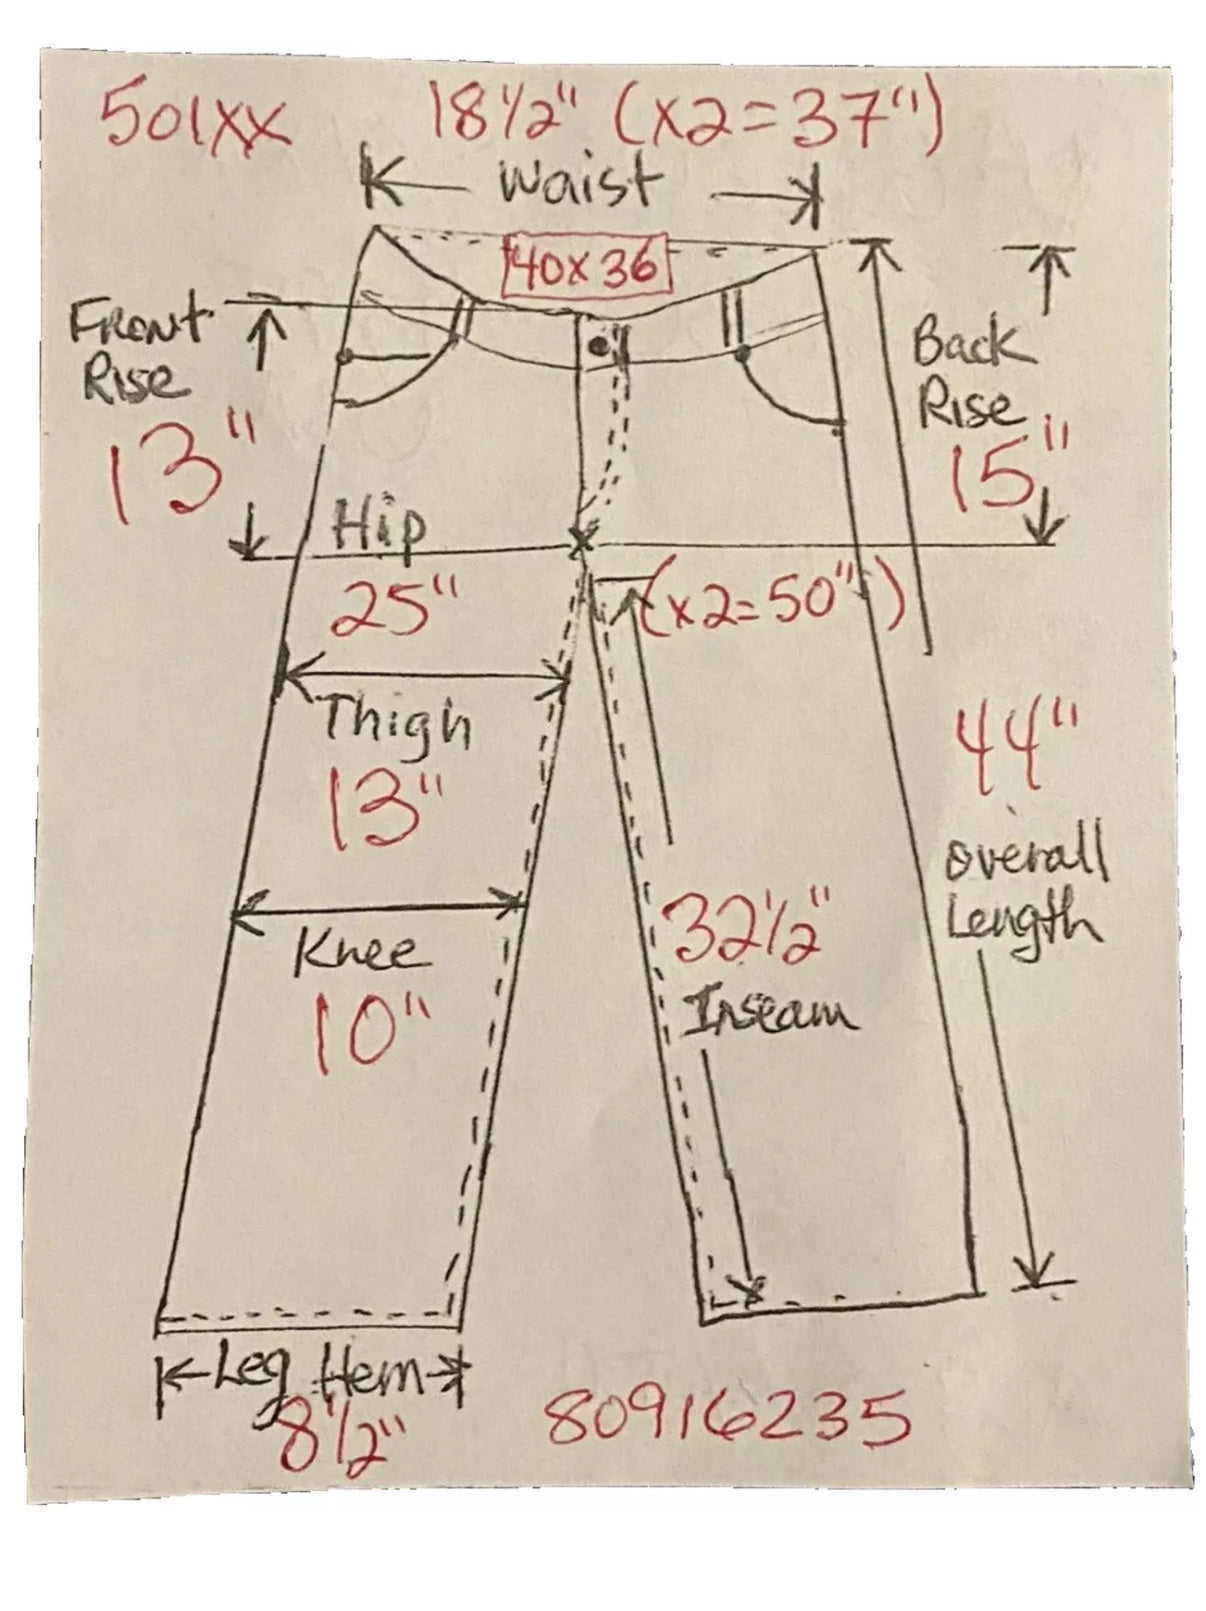 501xx 18 1/2" (x2=37")
Waist
40x36
Front
Rise
13"
Back
Rise
15"
Hip
25" (x2=50")
Thigh
13"
44"
Overall
Length
Knee
10"
32 1/2"
Inseam
Leg Hem
8 1/2"
80916235